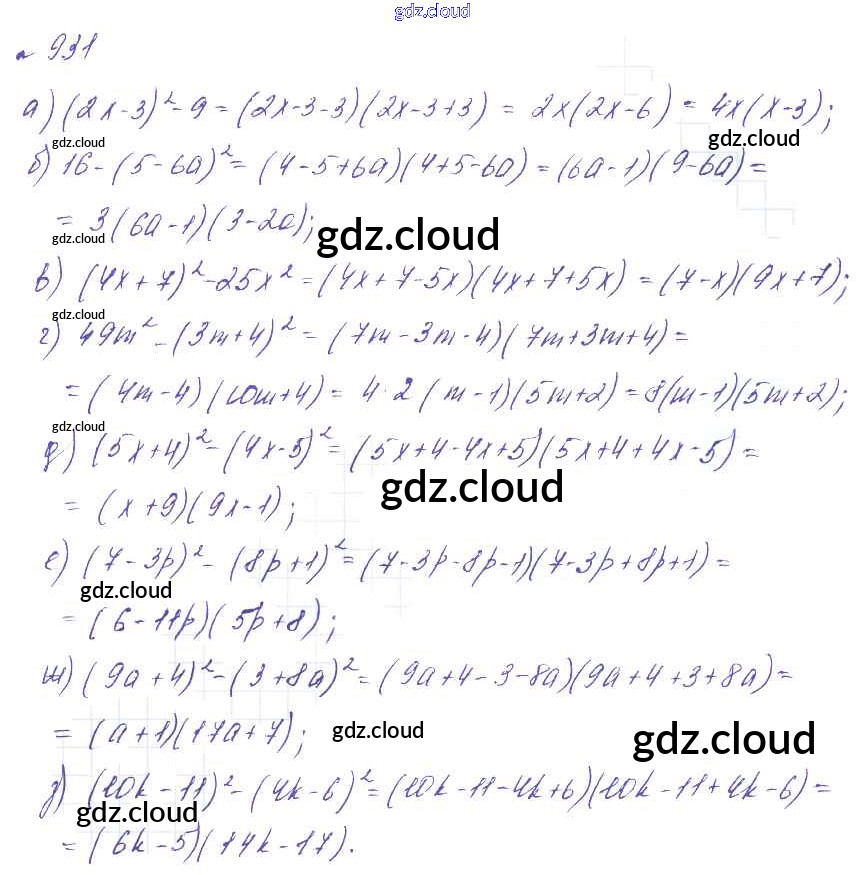 gdz.cloud
№ 931
а) (2x-3)²-9 = (2x-3-3)(2x-3+3) = 2x(2x-6) = 4x(x-3);
gdz.cloud gdz.cloud
б) 16-(5-6a)² = (4-5+6a)(4+5-6a) = (6a-1)(9-6a) =
= 3(6a-1)(3-2a);
gdz.cloud gdz.cloud
в) (4x+7)²-25x² = (4x+7-5x)(4x+7+5x) = (7-x)(9x+7);
gdz.cloud
г) 49m²-(3m+4)² = (7m-3m-4)(7m+3m+4) =
= (4m-4)(10m+4) = 4·2(m-1)(5m+2) = 8(m-1)(5m+2);
gdz.cloud
д) (5x+4)²-(4x-5)² = (5x+4-4x+5)(5x+4+4x-5) =
gdz.cloud
= (x+9)(9x-1);
е) (7-3p)²-(8p+1)² = (7-3p-8p-1)(7-3p+8p+1) =
gdz.cloud
= (6-11p)(5p+8);
ж) (9a+4)²-(3+8a)² = (9a+4-3-8a)(9a+4+3+8a) =
= (a+1)(17a+7); gdz.cloud gdz.cloud
з) (10k-11)²-(4k-6)² = (10k-11-4k+6)(10k-11+4k-6) =
gdz.cloud
= (6k-5)(14k-17).